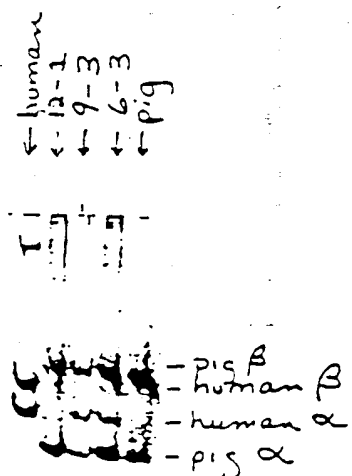 ← human
← 12-1
← 9-3
← 6-3
← pig
- pig β
- human β
- human α
- pig α